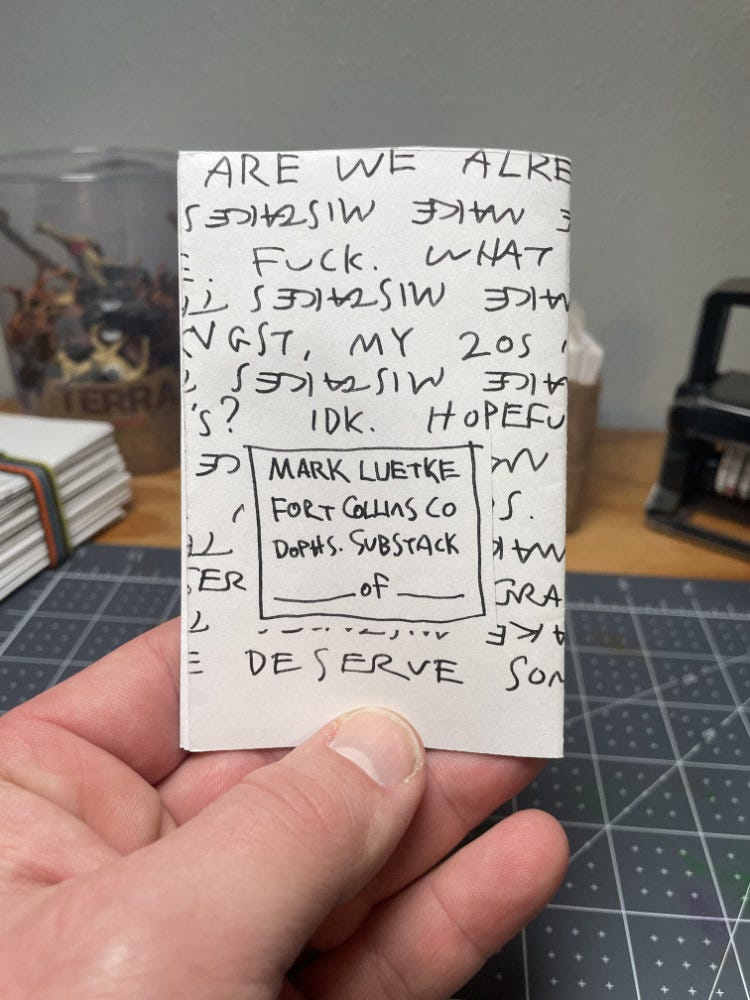 ARE WE ALRE
MAKE MISTAKES
FUCK. WHAT
AKE MISTAKES
NGST, MY 20S
AKE MISTAKES
'S? IDK. HOPEFU
MARK LUETKE
FORT COLLINS CO
DOPHS. SUBSTACK
___ of ___
S.
MAK
ER
GRA
AKE
DESERVE SOM
TERRA